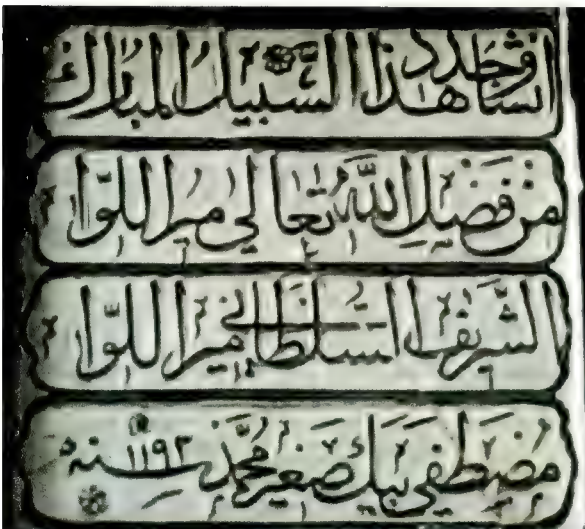 انشا وجدد هذا السبيل المبارك
من فضل الله تعالى مير اللوا
الشريف السلطاني مير اللوا
مصطفى بيك صغير محمد سنه ١١٩٣